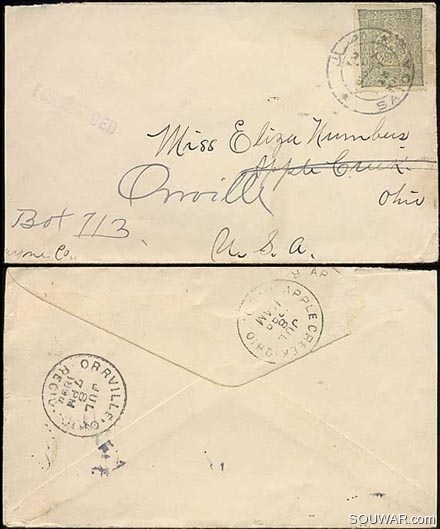 FORWARDED
SA
Miss Eliza Numbers
Apple Creek
Orrville
Ohio
Box 713
U.S.A.
ayne Co.
APPLE CREEK OHIO
JUL
8
AM
ORRVILLE OHIO
JUL
8
7 PM
REC'D.
SQUWAR.com